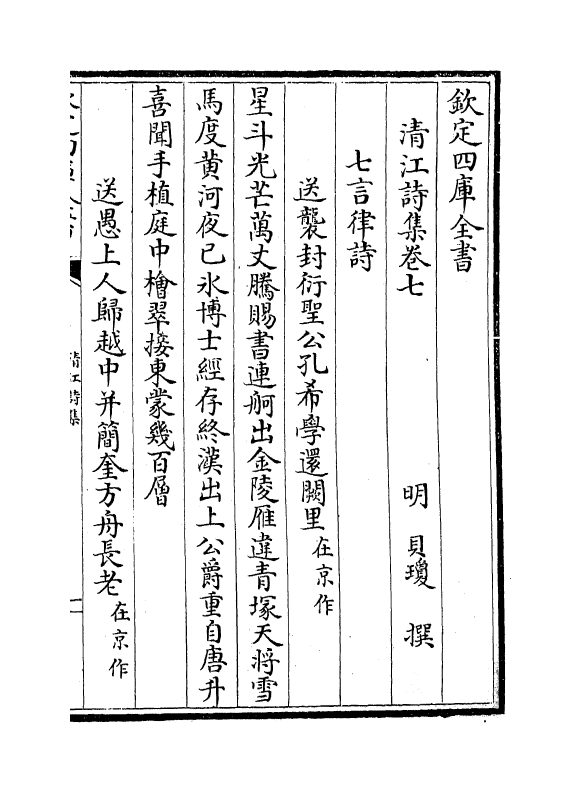 欽定四庫全書
清江詩集卷七
明 貝瓊 撰
七言律詩
送襲封衍聖公孔希學還闕里在京作
星斗光芒萬丈騰賜書連舸出金陵雁違青塚天將雪
馬度黃河夜已氷博士經存終漢出上公爵重自唐升
喜聞手植庭中檜翠接東蒙幾百層
送愚上人歸越中并簡奎方舟長老在京作
清江詩集
一